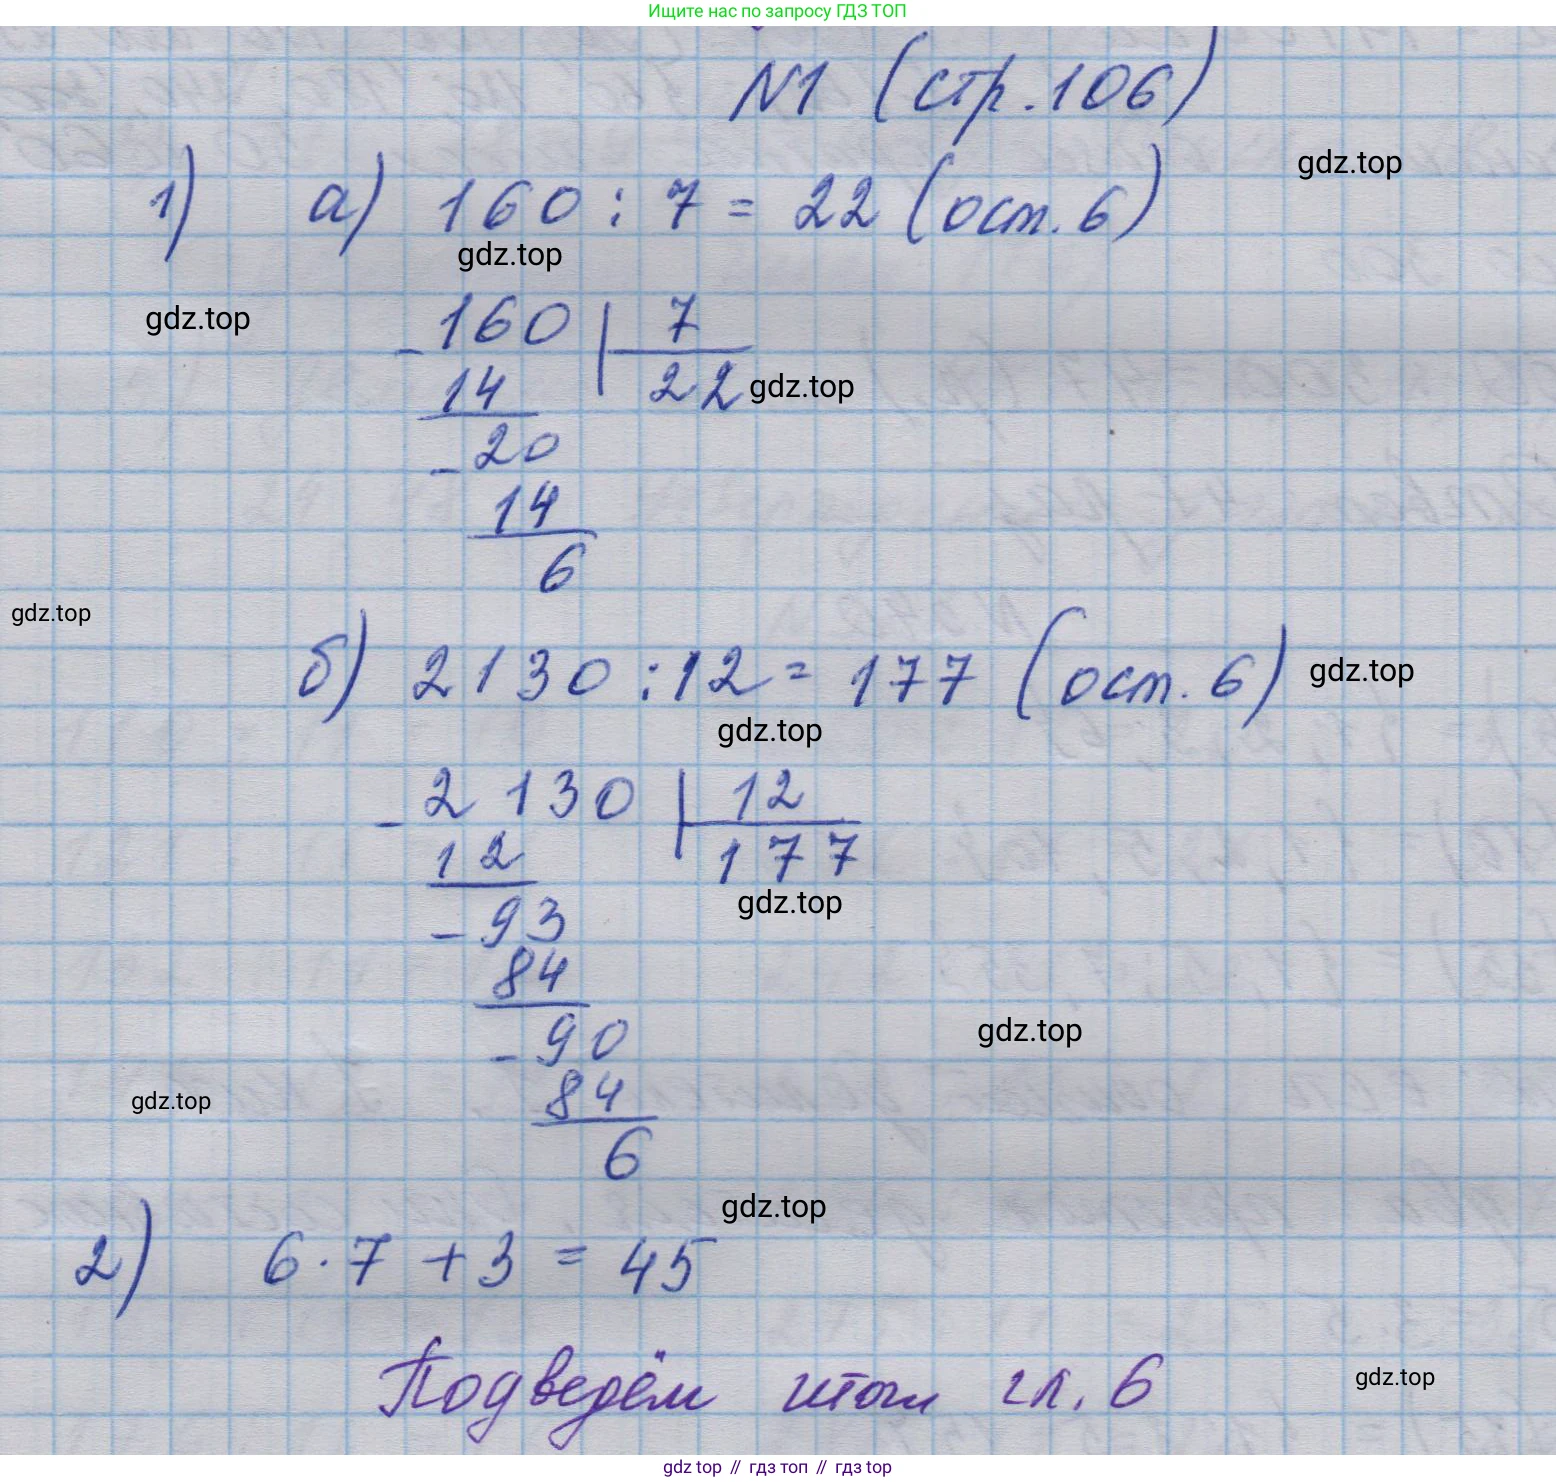 Ищите нас по запросу ГДЗ ТОП
N1 (стр. 106)
gdz.top
1) а) 160 : 7 = 22 (ост. 6)
gdz.top
gdz.top
- 160 | 7
14 22 gdz.top
- 20
14
6
gdz.top
б) 2130 : 12 = 177 (ост. 6) gdz.top
gdz.top
- 2130 | 12
12 177
gdz.top
- 93
84
- 90
gdz.top
84
gdz.top
6
gdz.top
2) 6 · 7 + 3 = 45
Подведём итоги гл. 6
gdz.top
gdz top // гдз топ // гдз top